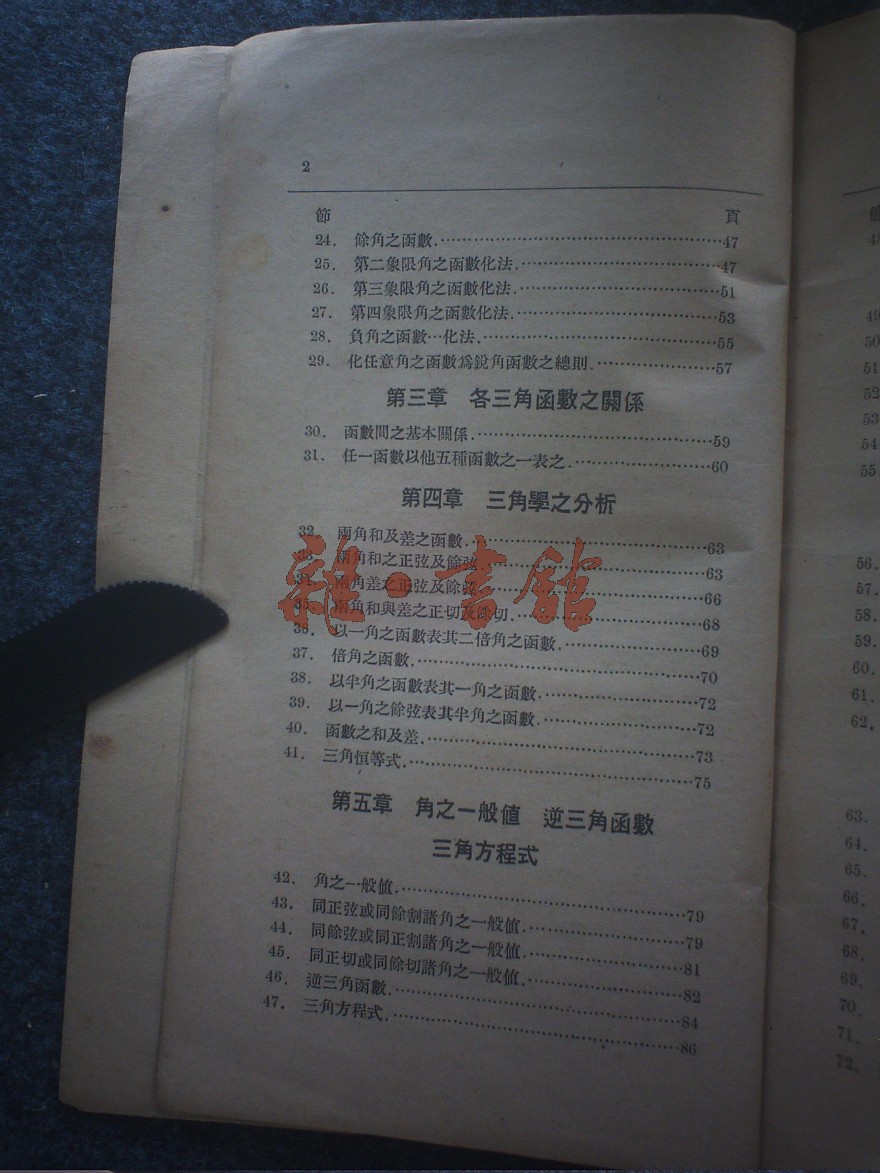 2
節 頁
24. 餘角之函數.……47
25. 第二象限角之函數化法.……47
26. 第三象限角之函數化法.……51
27. 第四象限角之函數化法.……53
28. 負角之函數…化法.……55
29. 化任意角之函數爲銳角函數之總則.……57
第三章 各三角函數之關係
30. 函數間之基本關係.……59
31. 任一函數以他五種函數之一表之.……60
第四章 三角學之分析
32. 兩角和及差之函數.……63
33. 兩角和之正弦及餘弦.……63
34. 兩角差之正弦及餘弦.……66
35. 兩角和與差之正切及餘切.……68
36. 以一角之函數表其二倍角之函數.……69
37. 倍角之函數.……70
38. 以半角之函數表其一角之函數.……72
39. 以一角之餘弦表其半角之函數.……72
40. 函數之和及差.……73
41. 三角恒等式.……75
第五章 角之一般値 逆三角函數
三角方程式
42. 角之一般値.……79
43. 同正弦或同餘割諸角之一般値.……79
44. 同餘弦或同正割諸角之一般値.……81
45. 同正切或同餘切諸角之一般値.……82
46. 逆三角函數.……84
47. 三角方程式.……86
雜·書館
49
50
51
52
53
54
55
56.
57.
58.
59.
60.
61.
62.
63.
64.
65.
66.
67.
68.
69.
70.
71.
72.